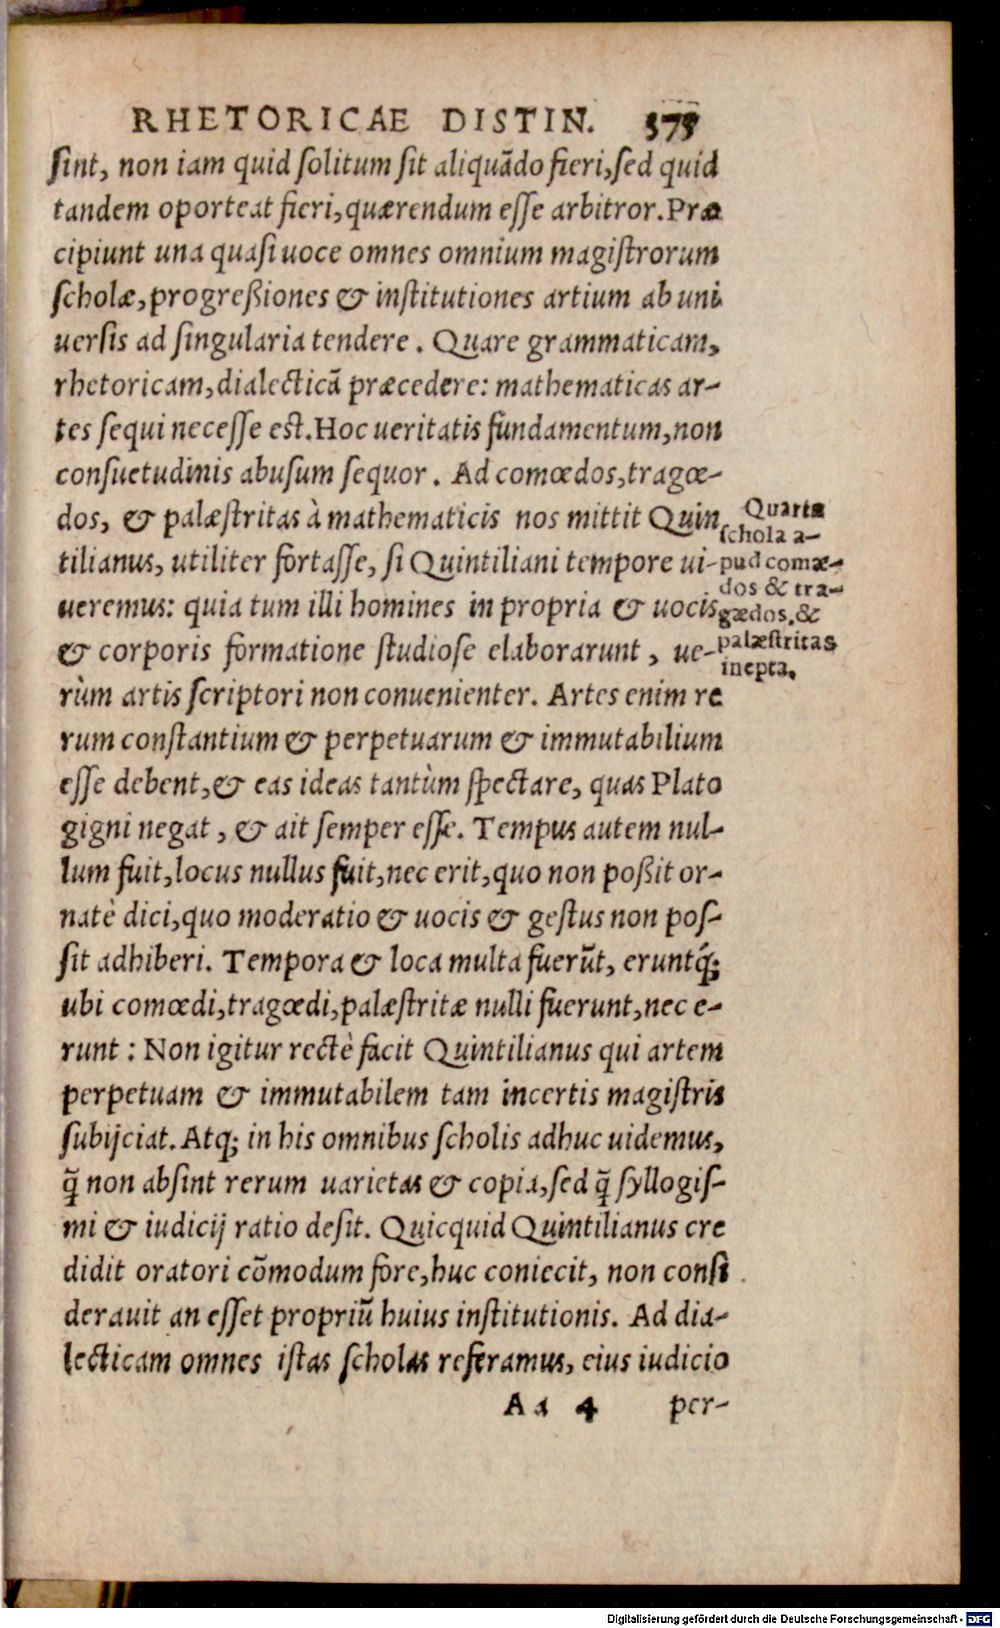 RHETORICAE DISTIN. 375
sint, non iam quid solitum sit aliquãdo fieri, sed quid
tandem oporteat fieri, quærendum esse arbitror. Præ
cipiunt una quasi uoce omnes omnium magistrorum
scholæ, progreßiones & institutiones artium ab uni
uersis ad singularia tendere. Quare grammaticam,
rhetoricam, dialecticã præcedere: mathematicas ar-
tes sequi necesse est. Hoc ueritatis fundamentum, non
consuetudinis abusum sequor. Ad comœdos, tragœ-
dos, & palæstritas à mathematicis nos mittit Quin
tilianus, utiliter fortasse, si Quintiliani tempore ui-
ueremus: quia tum illi homines in propria & uocis
& corporis formatione studiose elaborarunt, ue-
rùm artis scriptori non conuenienter. Artes enim re
rum constantium & perpetuarum & immutabilium
esse debent, & eas ideas tantùm spectare, quas Plato
gigni negat, & ait semper esse. Tempus autem nul-
lum fuit, locus nullus fuit, nec erit, quo non poßit or-
natè dici, quo moderatio & uocis & gestus non pos-
sit adhiberi. Tempora & loca multa fuerũt, eruntq́;
ubi comœdi, tragœdi, palæstritæ nulli fuerunt, nec e-
runt: Non igitur rectè facit Quintilianus qui artem
perpetuam & immutabilem tam incertis magistris
subijciat. Atq; in his omnibus scholis adhuc uidemus,
q̃ non absint rerum uarietas & copia, sed q̃ syllogis-
mi & iudicij ratio desit. Quicquid Quintilianus cre
didit oratori cõmodum fore, huc coniecit, non consi
derauit an esset propriũ huius institutionis. Ad dia-
lecticam omnes istas scholas referamus, eius iudicio
Aa 4 per-
Quarta
schola a-
pud comæ-
dos & tra-
gædos, &
palæstritas
inepta.
Digitalisierung gefördert durch die Deutsche Forschungsgemeinschaft - DFG